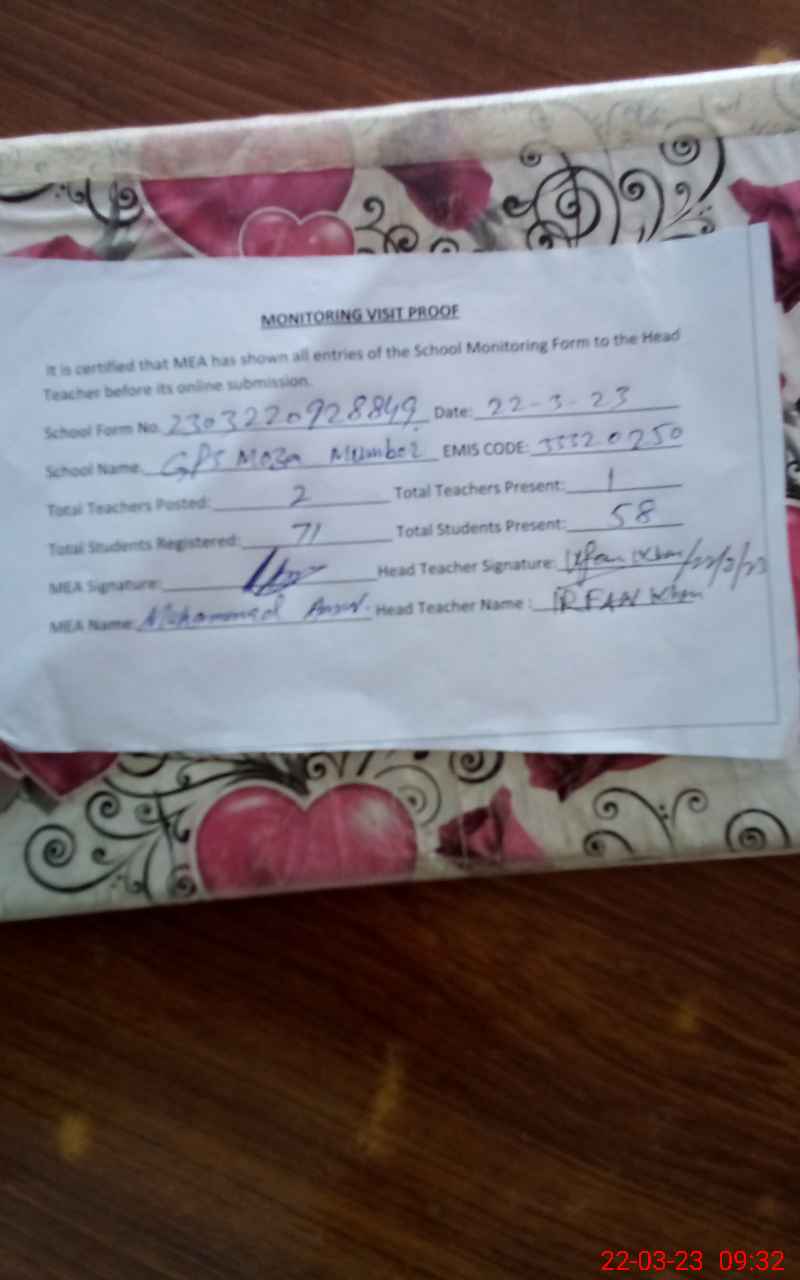 MONITORING VISIT PROOF
It is certified that MEA has shown all entries of the School Monitoring Form to the Head
Teacher before its online submission.
School Form No. 2303220928849 Date: 22-3-23
School Name: GPS Moza Mumber EMIS CODE: 33320250
Total Teachers Posted: 2 Total Teachers Present: 1
Total Students Registered: 71 Total Students Present: 58
MEA Signature: Head Teacher Signature: Irfan Khan 22/3/23
MEA Name: Mohammad Head Teacher Name : IRFAN Khan
22-03-23 09:32